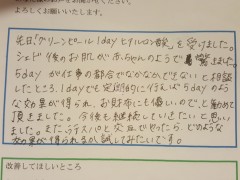 よろしくお願いいたします。
先日「グリーンピール1dayヒアルロン酸」を受けました。
シェービング後のお肌が赤ちゃんのようで驚きました。
5dayが仕事の都合でなかなかできないと相談
したところ、1dayでも定期的に行えば5dayのよう
な効果が得られ、お財布にも優しいので、と勧めて
頂きました。今後も継続していきたいと思い
ました。また、ライスパワーと交互でやったら、どのような
効果が得られるか試してみたいです。
改善してほしいところ